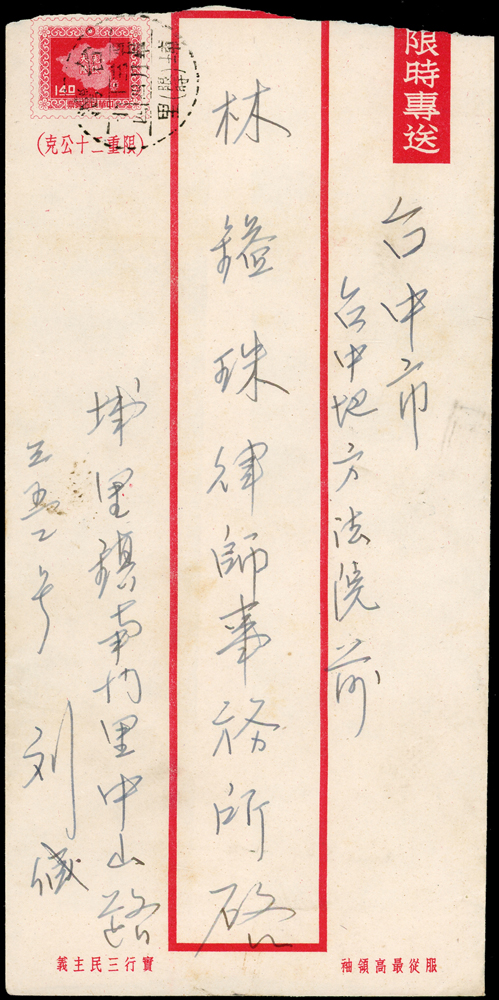 限時專送
台中市
台中地方法院前
林鎰珠律師事務所啟
埔里鎮南門里中山路
三五二号 刘 緘
1.40
(限重二十公克)
服從最高領袖
實行三民主義